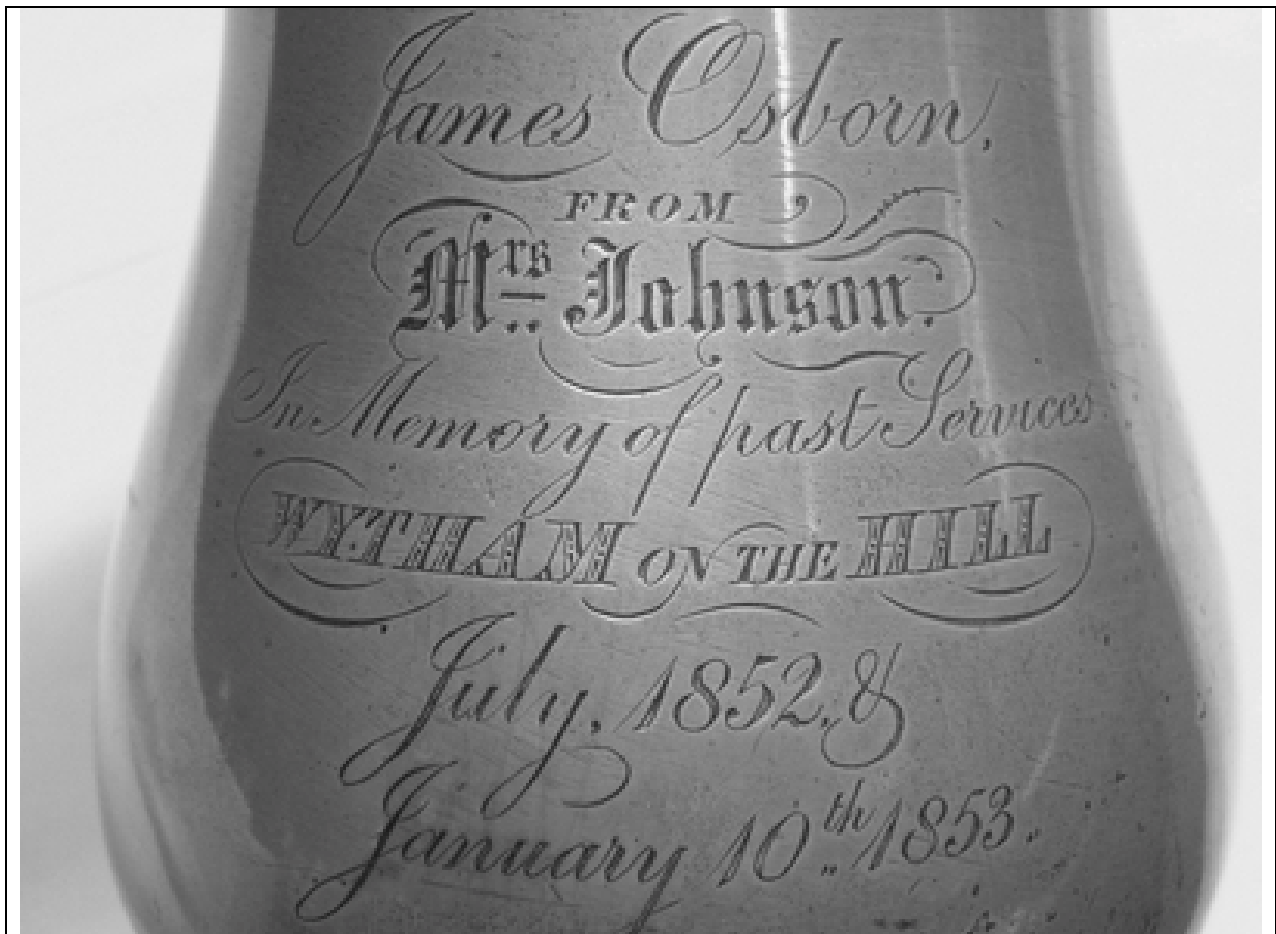 James Osborn,
FROM
Mrs Johnson.
In Memory of past Services
WYTHAM ON THE HILL
July, 1852, &
January 10th 1853.